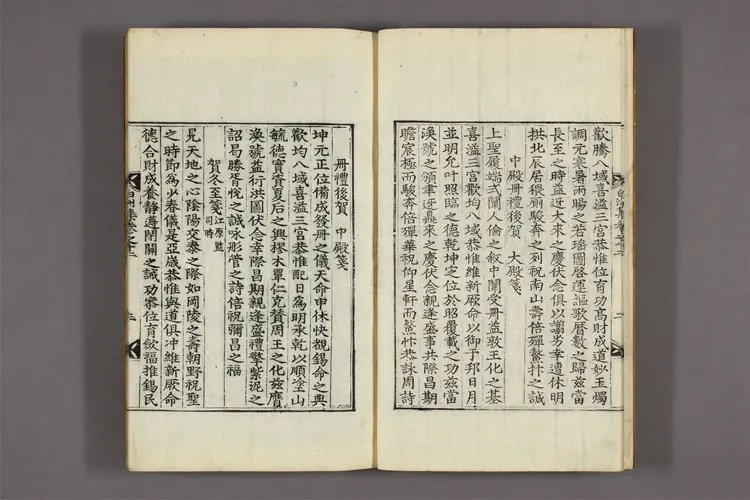 歡騰八域喜溢三宮恭惟位育功高財成道妙玉燭
調元寒暑雨暘之若瑤圖啓運謳歌曆數之歸玆當
長至之時益迓大來之慶伏念俱以謭劣幸遭休明
拱北辰居猥厠駿奔之列祝南山壽倍殫鰲抃之誠
中殿冊禮後賀 大殿箋
上聖履端式闡人倫之叙中闈受冊益敦王化之基
喜溢三宮歡均八域恭惟維新厥命以御于邦日月
並明允叶照臨之德乾坤定位於昭覆載之功玆當
渙號之頒聿迓鼎來之慶伏念親逢盛事共際昌期
瞻宸極而駿奔倍殫華祝仰星軒而鰲忭恭詠周詩
冊禮後賀 中殿箋
坤元正位備成發冊之儀天命申休快覩錫命之典
歡均八域喜溢三宮恭惟配日爲明承乾以順塗山
毓德實資夏后之興樛木覃仁克贊周王之化玆膺
渙號益衍洪圖伏念幸際昌期親逢盛禮擎紫泥之
詔曷勝胥悅之誠咏彤管之詩倍祝彌昌之福
賀冬至箋 江原監司時
見天地之心陰陽交泰之際如岡陵之壽朝野祝聖
之時節爲少春儀是亞歲恭惟與道俱冲維新厥命
德合財成養靜遵閉關之誠功參位育歛福推錫民